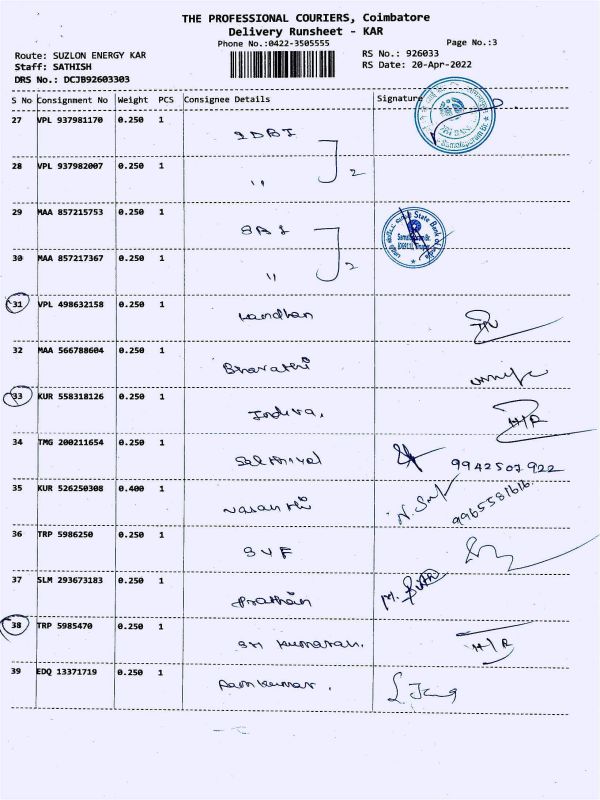 THE PROFESSIONAL COURIERS, Coimbatore
Delivery Runsheet - KAR
Phone No.:0422-3505555
Page No.:3
Route: SUZLON ENERGY KAR
RS No.: 926033
Staff: SATHISH
RS Date: 20-Apr-2022
DRS No.: DCJB92603303
S No Consignment No Weight PCS Consignee Details Signature
27 VPL 937981170 0.250 1 IDBI
2
28 VPL 937982007 0.250 1 "
29 MAA 857215753 0.250 1 SBI
State Bank of India
2
30 MAA 857217367 0.250 1 "
31 VPL 498632158 0.250 1 Kandhan
32 MAA 566788604 0.250 1 Bharathi
33 KUR 558318126 0.250 1 Indira, H/R
34 TMG 200211654 0.250 1 Sakthivel 9942507922
35 KUR 526250308 0.400 1 Vasanthi 9965581616
36 TRP 5986250 0.250 1 SVF
37 SLM 293673183 0.250 1 Prathain
38 TRP 5985470 0.250 1 Sri Kumaran. H/R
39 EDQ 13371719 0.250 1 Ramkumar.